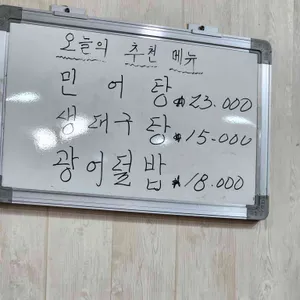 오늘의 추천 메뉴
민어탕 ₩23.000
생대구탕 ₩15-000
광어덮밥 ₩18.000